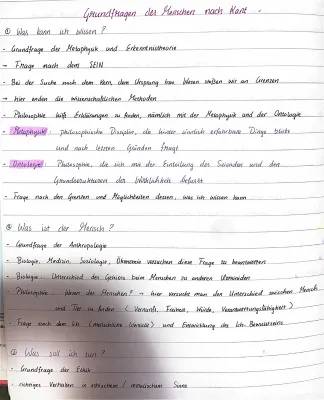 Grundfragen des Menschen nach Kant
① Was kann ich wissen?
- Grundfrage der Metaphysik und Erkenntnistheorie
→ Frage nach dem SEIN
- Bei der Suche nach dem Kern, dem Ursprung bzw. Wesen stoßen wir an Grenzen
→ hier enden die wissenschaftlichen Methoden
- Philosophie hilft Erklärungen zu finden, nämlich mit der Metaphysik und der Ontologie
- Metaphysik: philosophische Disziplin, die hinter sinnlich erfahrbare Dinge blickt
und nach letzten Gründen fragt
- Ontologie: Philosophie, die sich mit der Einteilung des Seienden und den
Grundstrukturen der Wirklichkeit befasst
- Frage nach den Grenzen und Möglichkeiten dessen, was ich wissen kann
② Was ist der Mensch?
- Grundfrage der Anthropologie
- Biologie, Medizin, Soziologie, Ökonomie versuchen diese Frage zu beantworten
- Biologie: Unterschied des Gehirns beim Menschen zu anderen
- Philosophie: Wesen des Menschen? → hier versucht man den Unterschied zwischen Mensch
und Tier zu finden (Vernunft, Freiheit, Würde, Verantwortungsfähigkeit)
- Frage nach dem Ich (menschliche Identität) und Entwicklung des Ich-Bewusstseins
③ Was soll ich tun?
- Grundfrage der Ethik
- richtiges Verhalten in ethischem / moralischem Sinne